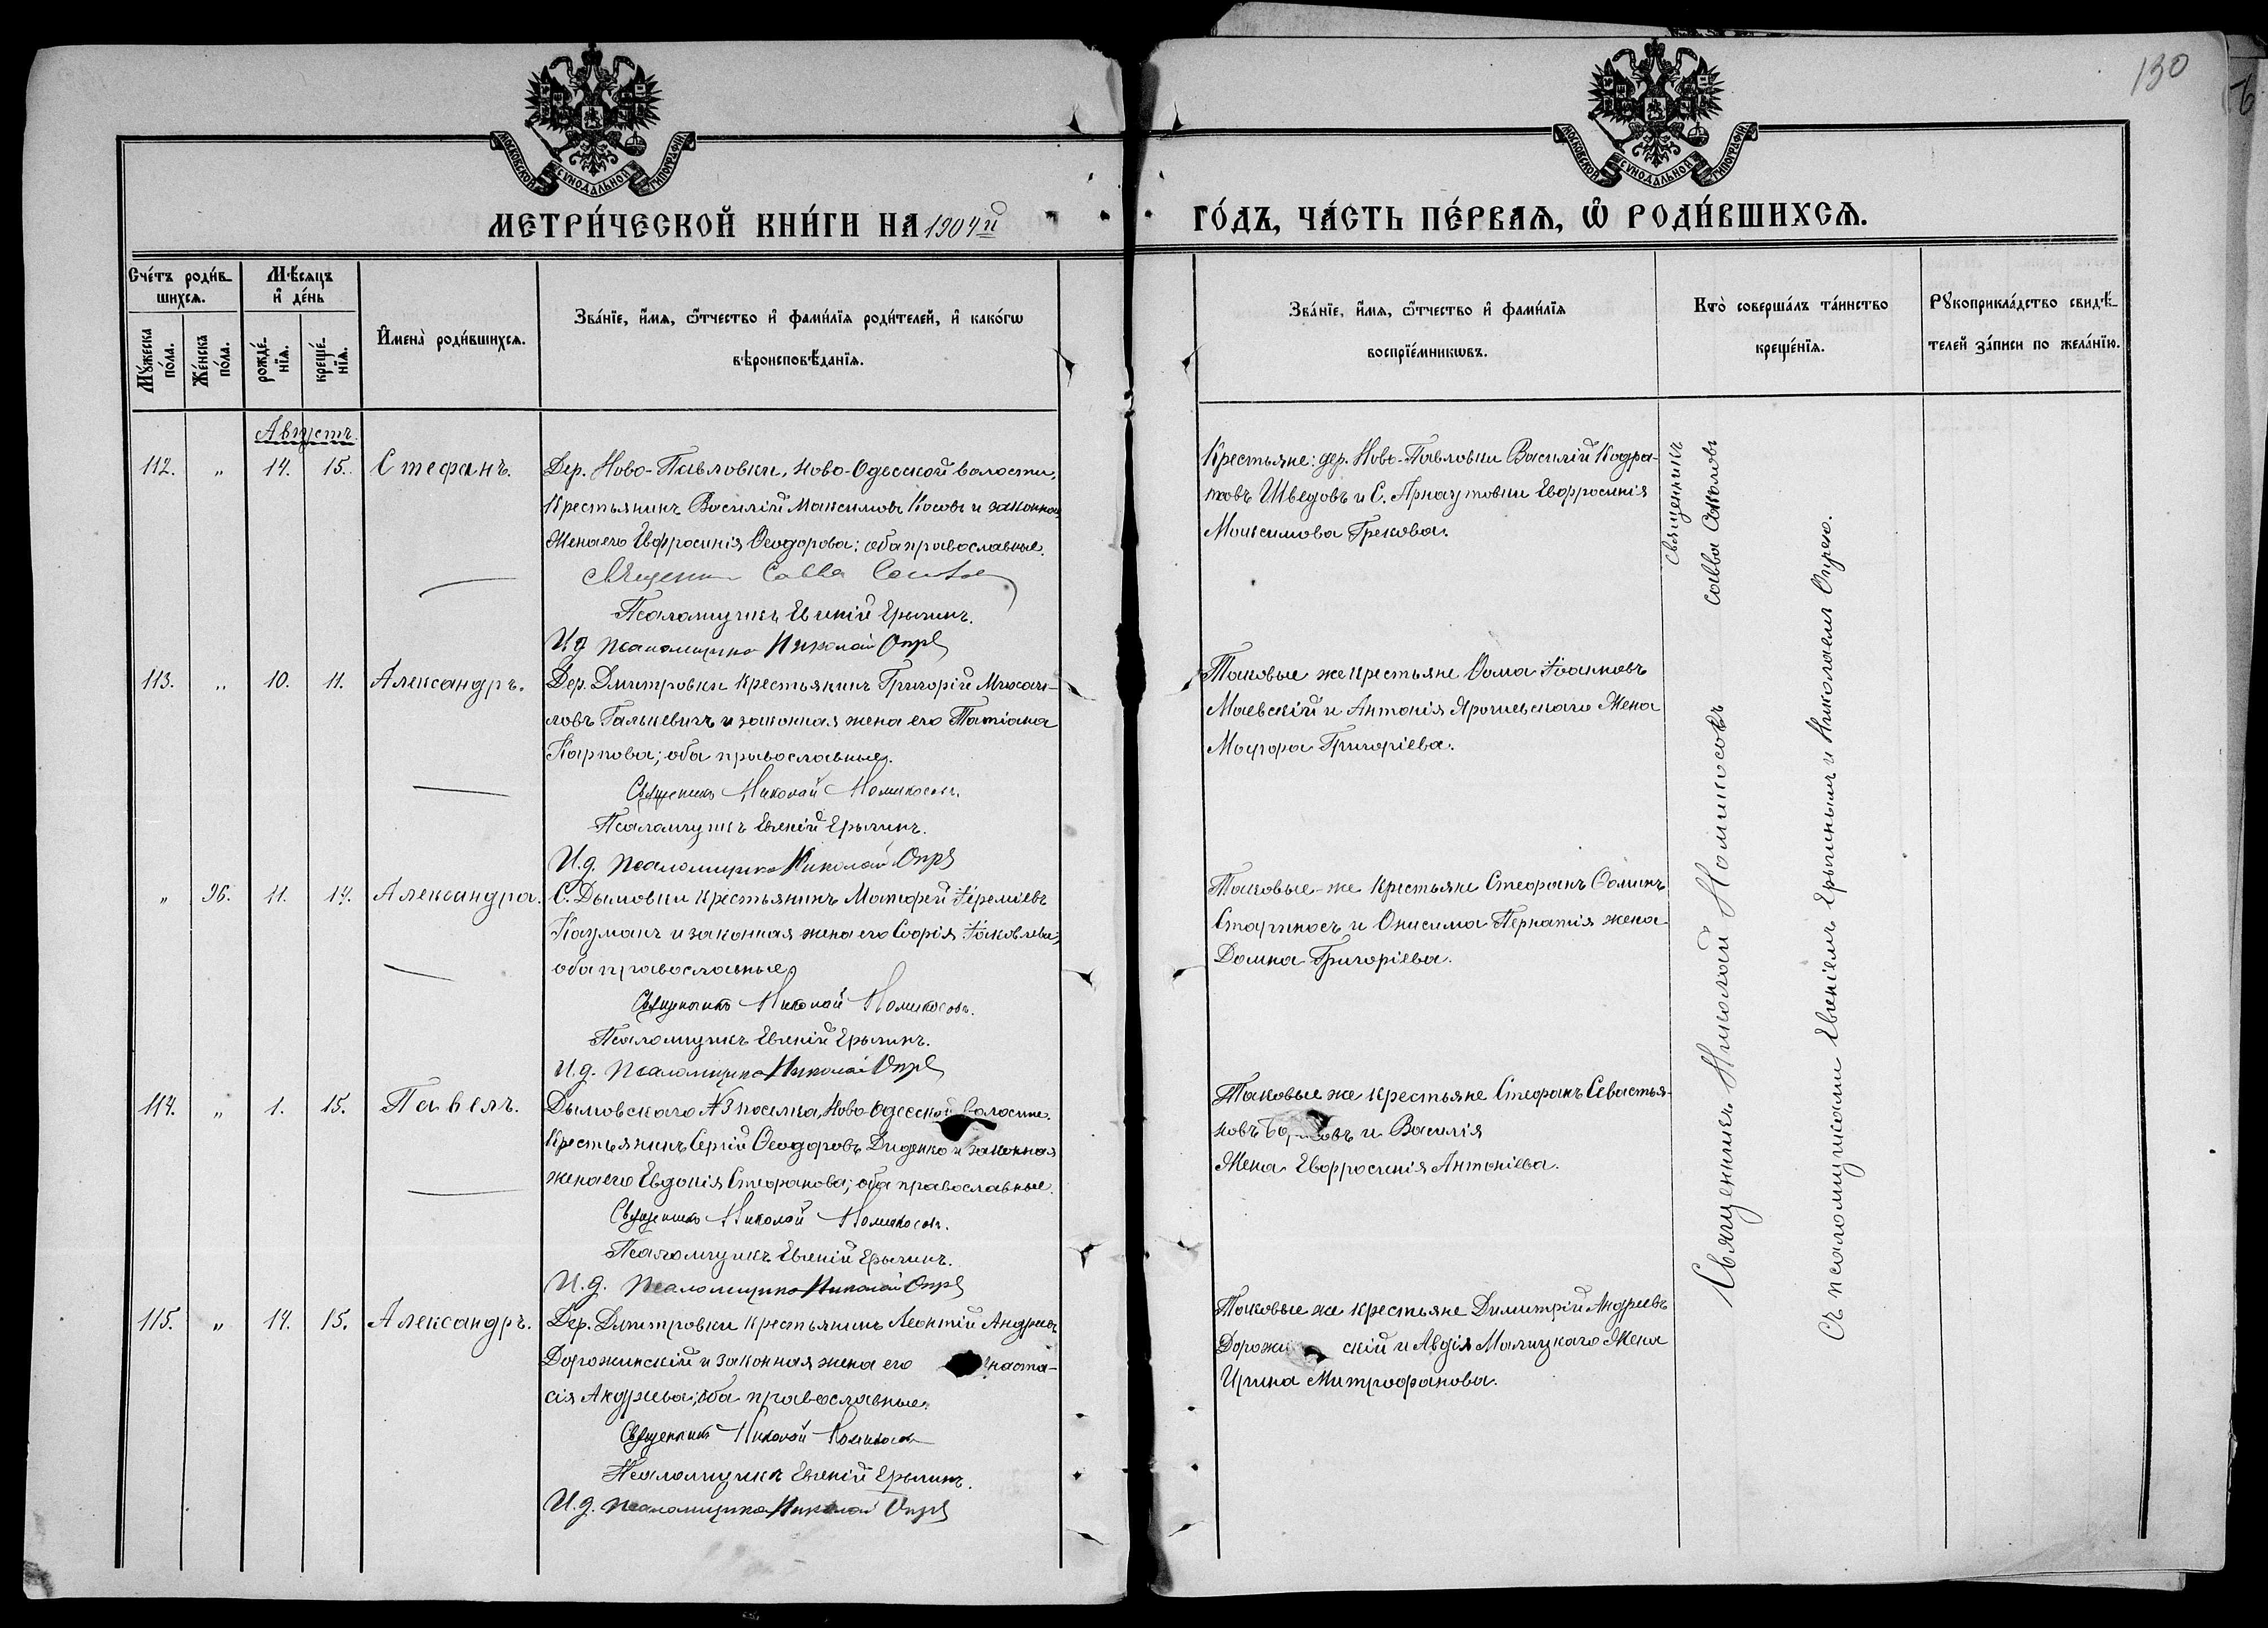 130
МОСКОВСКОЙ СѴНОДАЛЬНОЙ ТИПОГРАФІИ
МОСКОВСКОЙ СѴНОДАЛЬНОЙ ТИПОГРАФІИ
МЕТРИ́ЧЕСКОЙ КНИ́ГИ НА 1904й
ГО́ДЪ, ЧА́СТЬ ПЕ́РВАѦ, Ѿ РОДИ́ВШИХСѦ.
Сче́тъ роди́в-
шихсѧ.
Мꙋ́жеска по́ла.
Же́нска по́ла.
Мѣ́сѧцъ
и҆ де́нь
рожде́-
нїѧ.
креще́-
нїѧ.
И҆мена̀ роди́вшихсѧ.
Зва́нїе, и҆́мѧ, ѻ҆́тчество и҆ фами́лїѧ роди́телей, и҆ како́гѡ
вѣроисповѣ́данїѧ.
Зва́нїе, и҆́мѧ, ѻ҆́тчество и҆ фами́лїѧ
воспрїе́мникѡвъ.
Кто̀ соверша́лъ та́инство
креще́нїѧ.
Рꙋкоприкла́дство свидѣ́-
телей за́писи по жела́нїю.
Августъ.
112. „ 14. 15. Стефанъ.
Дер. Ново-Павловки, Ново-Одесской волости,
Крестьянинъ Василій Максимовъ Косовъ и законная
Жена его Евфросинія Ѳеодорова; оба православные.
Священникъ Савва
Псаломщикъ Евгеній Ерыгинъ.
И.д. псаломщика Николай Опря
Крестьяне: дер. Ново-Павловки Василій Кодра-
товъ Шведовъ и С. Арнаутовки Евфросинія
Максимова Грекова.
Священникъ
Савва Соколовъ
113. „ 10. 11. Александръ.
Дер. Дмитровки крестьянинъ Григорій Михаи-
ловъ Галькевичъ и законная жена его Татіана
Карпова; оба православные.
Священникъ Николай Номикосовъ.
Псаломщикъ Евгеній Ерыгинъ.
И.д. псаломщика Николай Опря
Таковые же крестьяне Ѳома Іоанновъ
Маевскій и Антонія Жена
Григоріева.
„ 96. 11. 14. Александра.
С. Дымовки крестьянинъ Матфей Іереміевъ
Кауманъ и законная жена его Софія Іаковлева;
оба православные.
Священникъ Николай Номикосовъ.
Псаломщикъ Евгеній Ерыгинъ.
И.д. псаломщика Николай Опря
Таковые-же крестьяне Стефанъ Ѳоминъ
и Онисима жена
Домна Григоріева.
114. „ 1. 15. Павелъ.
Дымовскаго №3 поселка, Ново-Одесской волости.
Крестьянинъ Сергій Ѳеодоровъ Диденко и законная
жена его Евдокія Стефанова; оба православные.
Священникъ Николай Номикосовъ.
Псаломщикъ Евгеній Ерыгинъ.
И.д. псаломщика Николай Опря
Таковые же крестьяне Стефанъ Севастья-
новъ и Василія
Жена Евфросинія Антоніева.
115. „ 14. 15. Александръ.
Дер. Дмитровки крестьянинъ Леонтій Андреевъ
Дорожинскій и законная жена его Анаста-
сія Андреева; оба православные.
Священникъ Николай Номикосовъ
Псаломщикъ Евгеній Ерыгинъ.
И.д. псаломщика Николай Опря
Таковые же крестьяне Димитрій Андреевъ
Дорожи скій и Авдія Малицкаго Жена
Ирина Митрофанова.
Священникъ Николай Номикосовъ
Съ псаломщиками Евгеніемъ Ерыгинымъ и Николаемъ Опрею.